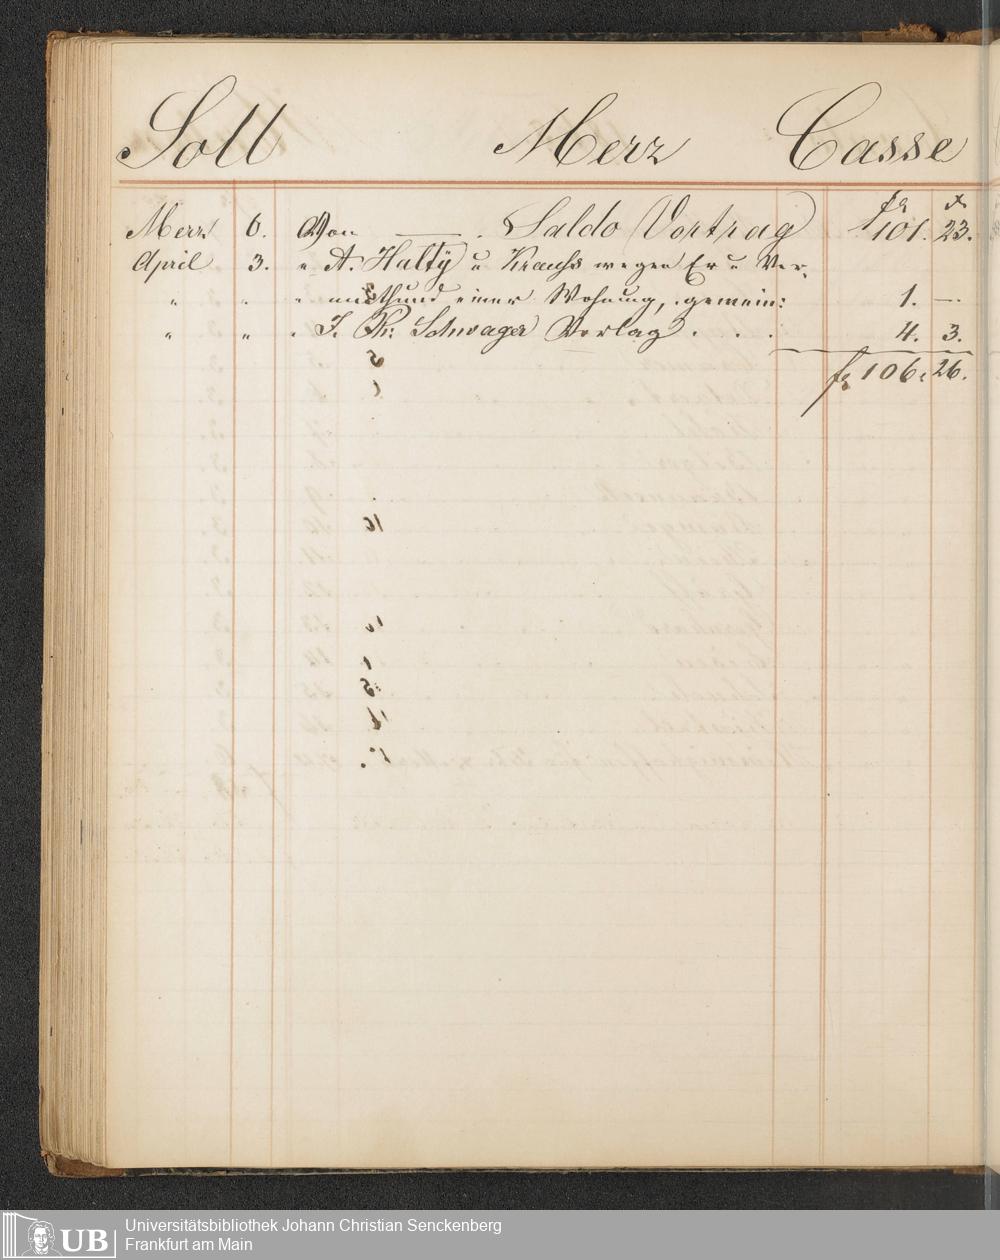 Soll Merz Casse
Merz 6. Von — . Saldo Vortrag f 101. 23.
April 3. " A. Halty u Krauß wegen Er u Ver,
" " " miethung einer Wohnung, gemein: 1. —.
" " " J. Ph. Schwager Verlag . . . 4. 3.
f 106. 26.
UB Universitätsbibliothek Johann Christian Senckenberg
Frankfurt am Main